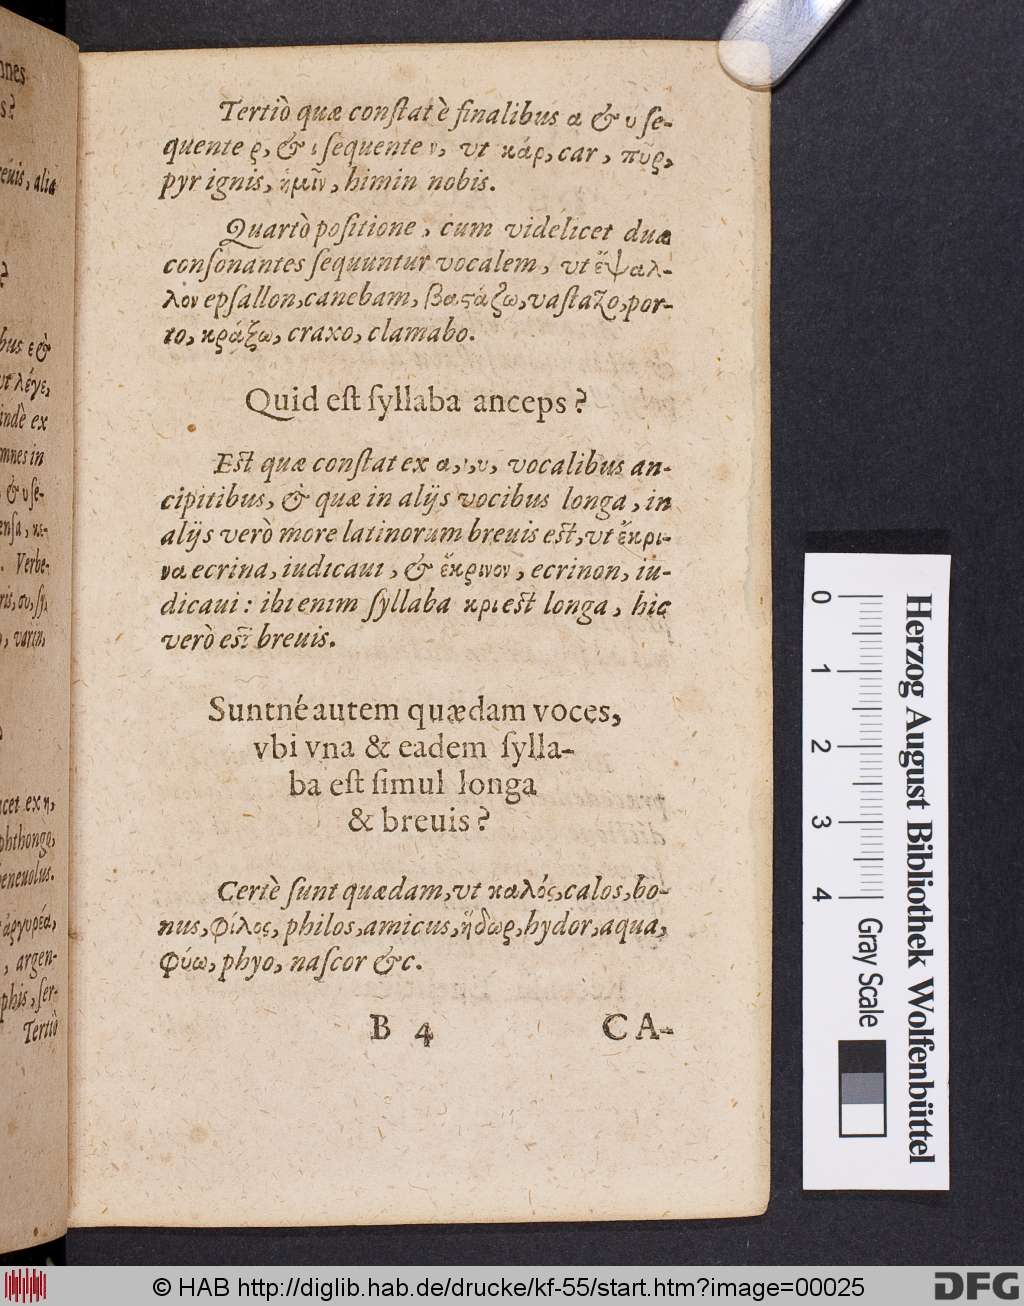 Tertiò quæ conſtat è finalibus α & υ ſe-
quente ρ, & ι ſequente ν, vt κάρ, car, πῦρ,
pyr ignis, ἡμῖν, himin nobis.
Quartò poſitione, cum videlicet duæ
conſonantes ſequuntur vocalem, vt ἔψαλ-
λον epſallon, canebam, βαϛάζω, vaſtazo, por-
to, κράξω, craxo, clamabo.
Quid eſt ſyllaba anceps?
Eſt quæ conſtat ex α, ι, υ, vocalibus an-
cipitibus, & quæ in alijs vocibus longa, in
alijs verò more latinorum breuis eſt, vt ἔκρι-
να ecrina, iudicaui, & ἔκρινον, ecrinon, iu-
dicaui: ibi enim ſyllaba κρι eſt longa, hic
verò eſt breuis.
Suntné autem quædam voces,
vbi vna & eadem ſylla-
ba eſt ſimul longa
& breuis?
Certè ſunt quædam, vt καλός, calos, bo-
nus, φίλος, philos, amicus, ὕδωρ, hydor, aqua,
φύω, phyo, naſcor &c.
B 4 CA-
nnes
s?
reuis, alia
?
bus ε &
vt λέγε,
indè ex
mnes in
, & υ ſe-
enſa, κε-
. Verbe-
ris, συ, ſy,
, varin,
?
icet ex η,
phthongo,
beneuolus.
ἀργυρέα,
, argen-
phis, ſer-
Tertiò
0 1 2 3 4
Herzog August Bibliothek Wolfenbüttel
Gray Scale
© HAB http://diglib.hab.de/drucke/kf-55/start.htm?image=00025
DFG